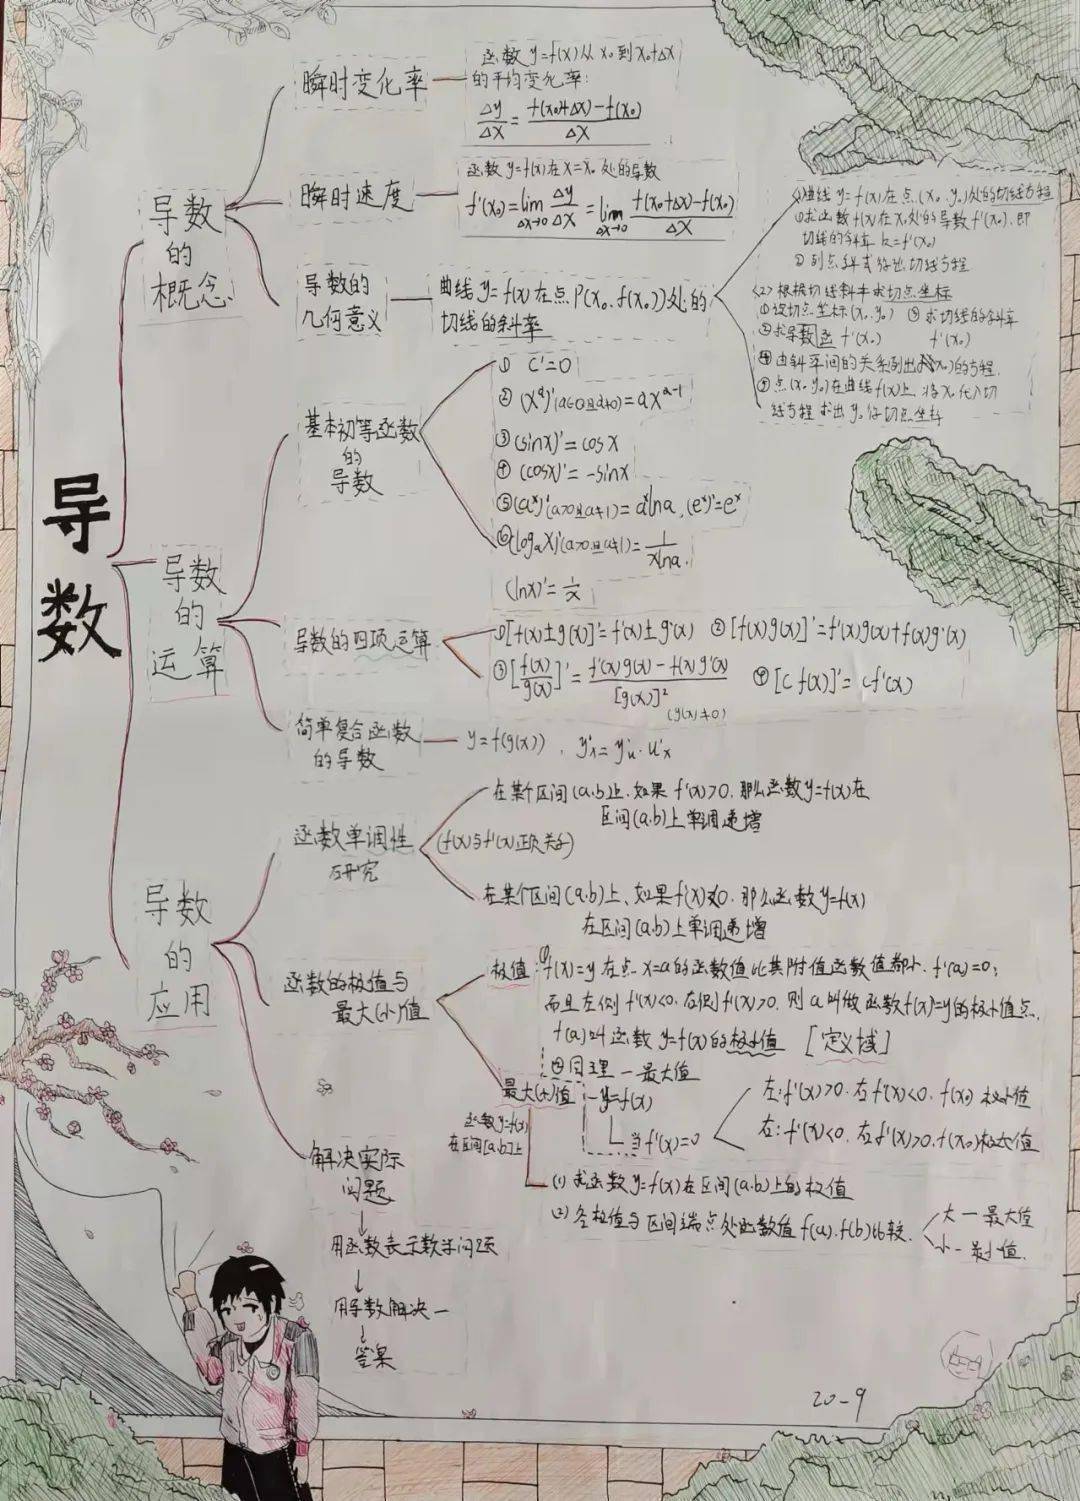 导数
导数
的
概念
瞬时变化率
函数 y=f(x)从 x₀ 到 x₀+Δx
的平均变化率:
Δy/Δx = (f(x₀+Δx)-f(x₀))/Δx
瞬时速度
函数 y=f(x)在 x=x₀ 处的导数
f'(x₀)=lim Δx→0 Δy/Δx = lim Δx→0 (f(x₀+Δx)-f(x₀))/Δx
导数的
几何意义
曲线 y=f(x) 在点 P(x₀.f(x₀))处的
切线的斜率
(1)曲线 y=f(x)在点(x₀.y₀)处的切线方程
①求函数f(x)在x₀处的导数f'(x₀).即
切线的斜率 k=f'(x₀)
② 列点斜式得出切线方程
(2)根据切线斜率求切点坐标
①设切点坐标(x₀.y₀) ③求切线的斜率
②求导数函 f'(x₀) f'(x₀)
④由斜率间的关系列出x₀)的方程.
⑤点(x₀.y₀)在曲线f(x)上,将x₀代入切
线方程求出y₀得切点坐标
导数
的
运算
基本初等函数
的
导数
① C'=0
② (xᵅ)'(a∈Q且a≠0)=axᵅ⁻¹
③(sinx)'=cosx
④ (cosx)'=-sinx
⑤(aˣ)'(a>0且a≠1)=aˣlna,(eˣ)'=eˣ
⑥(logₐx)'(a>0且a≠1)=1/xlna.
(lnx)'=1/x
导数的四项运算
①[f(x)±g(x)]'=f'(x)±g'(x) ②[f(x)g(x)]'=f'(x)g(x)+f(x)g'(x)
③[f(x)/g(x)]'=(f'(x)g(x)-f(x)g'(x))/[g(x)]² (g(x)≠0) ④[Cf(x)]'=Cf'(x)
简单复合函数
的导数
y=f(g(x)), y'ₓ=y'ᵤ·u'ₓ
导数
的
应用
函数单调性
研究
(f(x)与f'(x)正负关系)
在某个区间(a.b)上.如果 f'(x)>0,那么函数y=f(x)在
区间(a.b)上单调递增
在某个区间(a.b)上、如果f'(x)<0.那么函数y=f(x)
在区间(a.b)上单调递增
函数的极值与
最大(小)值
极值:①f(x)=y在点x=a的函数值比其附值函数值都小.f'(a)=0;
而且左侧f'(x)<0.右侧f'(x)>0.则a叫做函数f(x)=y的极小值点.
f(a)叫函数y=f(x)的极小值 [定义域]
②同理一最大值
最大(小)值
函数y=f(x)
在区间[a.b]上
y=f(x)
当f'(x)=0
左:f'(x)>0.右f'(x)<0.f(x₀)极小值
右:f'(x)<0.右f'(x)>0.f(x₀)极大值
(1)求函数y=f(x)在区间(a.b)上的极值
(2)各极值与区间端点处函数值f(a).f(b)比较.
大一最大值
小一最小值.
解决实际
问题
用函数表示数学问题
用导数解决一
答案
20-9